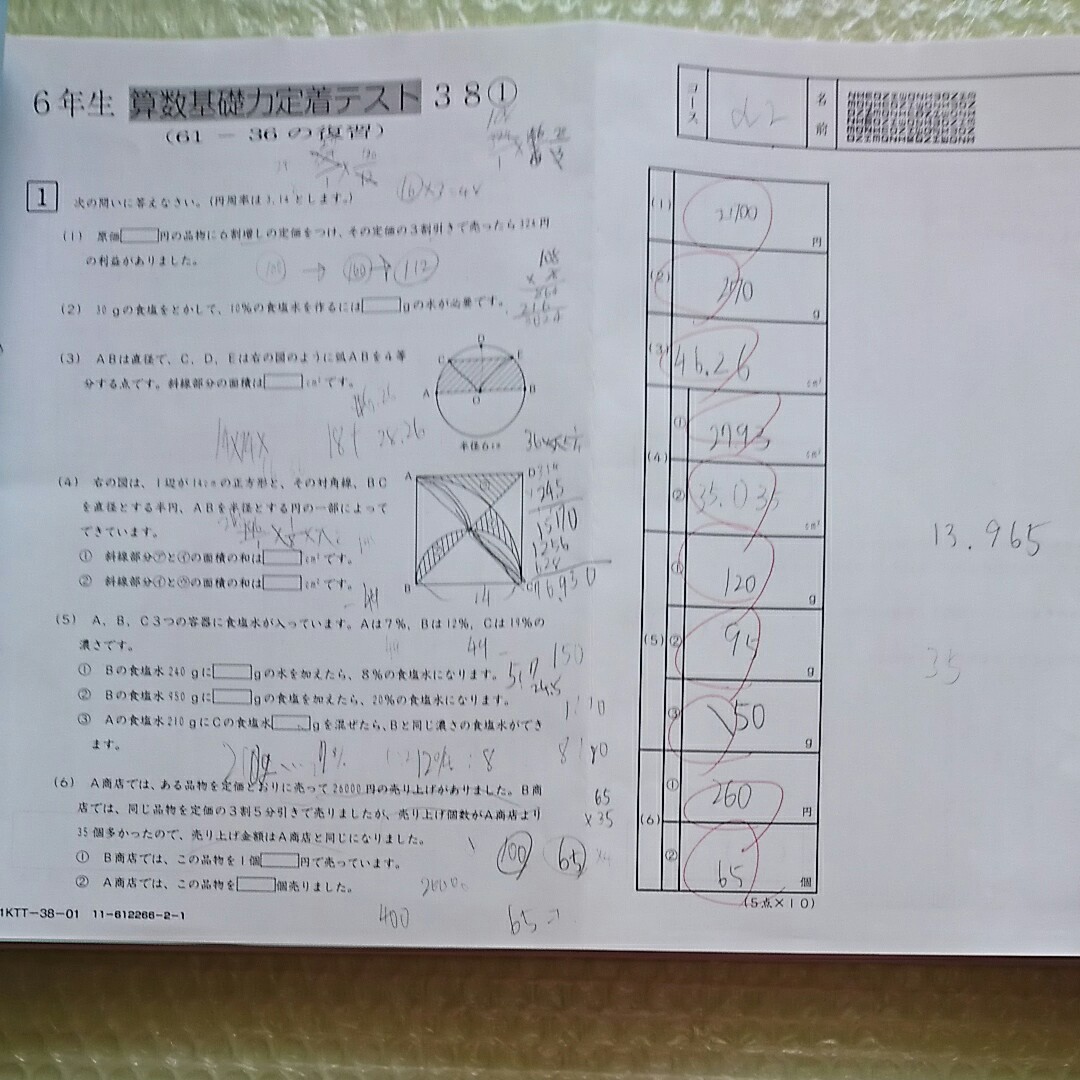 6年生 算数基礎力定着テスト 38①
(61-36の復習)
コース α2 名前
1 次の問いに答えなさい。(円周率は3.14とします。)
(1) 原価 円の品物に6割増しの定価をつけ、その定価の3割引きで売ったら324円
の利益がありました。
100 → 160 → 112
(2) 30gの食塩をとかして、10%の食塩水を作るには gの水が必要です。
(3) ABは直径で、C、D、Eは右の図のように弧ABを4等
分する点です。斜線部分の面積は cm²です。
半径6cm
18+28.26
(4) 右の図は、1辺が14cmの正方形と、その対角線、BC
を直径とする半円、ABを半径とする円の一部によって
できています。
① 斜線部分㋐と㋑の面積の和は cm²です。
② 斜線部分㋑と㋒の面積の和は cm²です。
A
D
B
14
(5) A、B、C3つの容器に食塩水が入っています。Aは7%、Bは12%、Cは19%の
濃さです。
① Bの食塩水240gに gの水を加えたら、8%の食塩水になります。
② Bの食塩水950gに gの食塩を加えたら、20%の食塩水になります。
③ Aの食塩水210gにCの食塩水 gを混ぜたら、Bと同じ濃さの食塩水ができ
ます。
(6) A商店では、ある品物を定価どおりに売って26000円の売り上げがありました。B商
店では、同じ品物を定価の3割5分引きで売りましたが、売り上げ個数がA商店より
35個多かったので、売り上げ金額はA商店と同じになりました。
① B商店では、この品物を1個 円で売っています。
② A商店では、この品物を 個売りました。
65
×35
100 65
400
1KTT-38-01 11-612266-2-1
(1) 2700 円
(2) 270 g
(3) 46.26 cm²
(4) ① 27.93 cm²
② 35.035 cm²
(5) ① 120 g
② 95 g
③ 150 g
(6) ① 260 円
② 65 個
(5点×10)
13.965
35